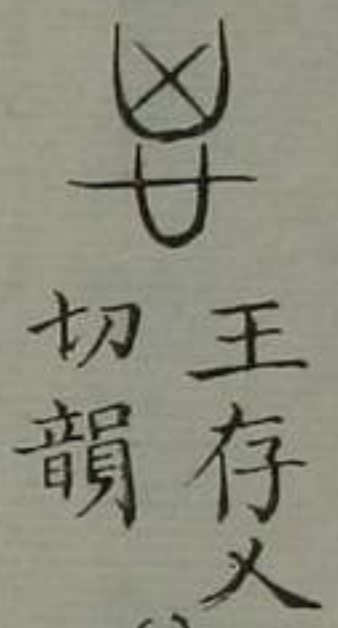 王存乂
切韻